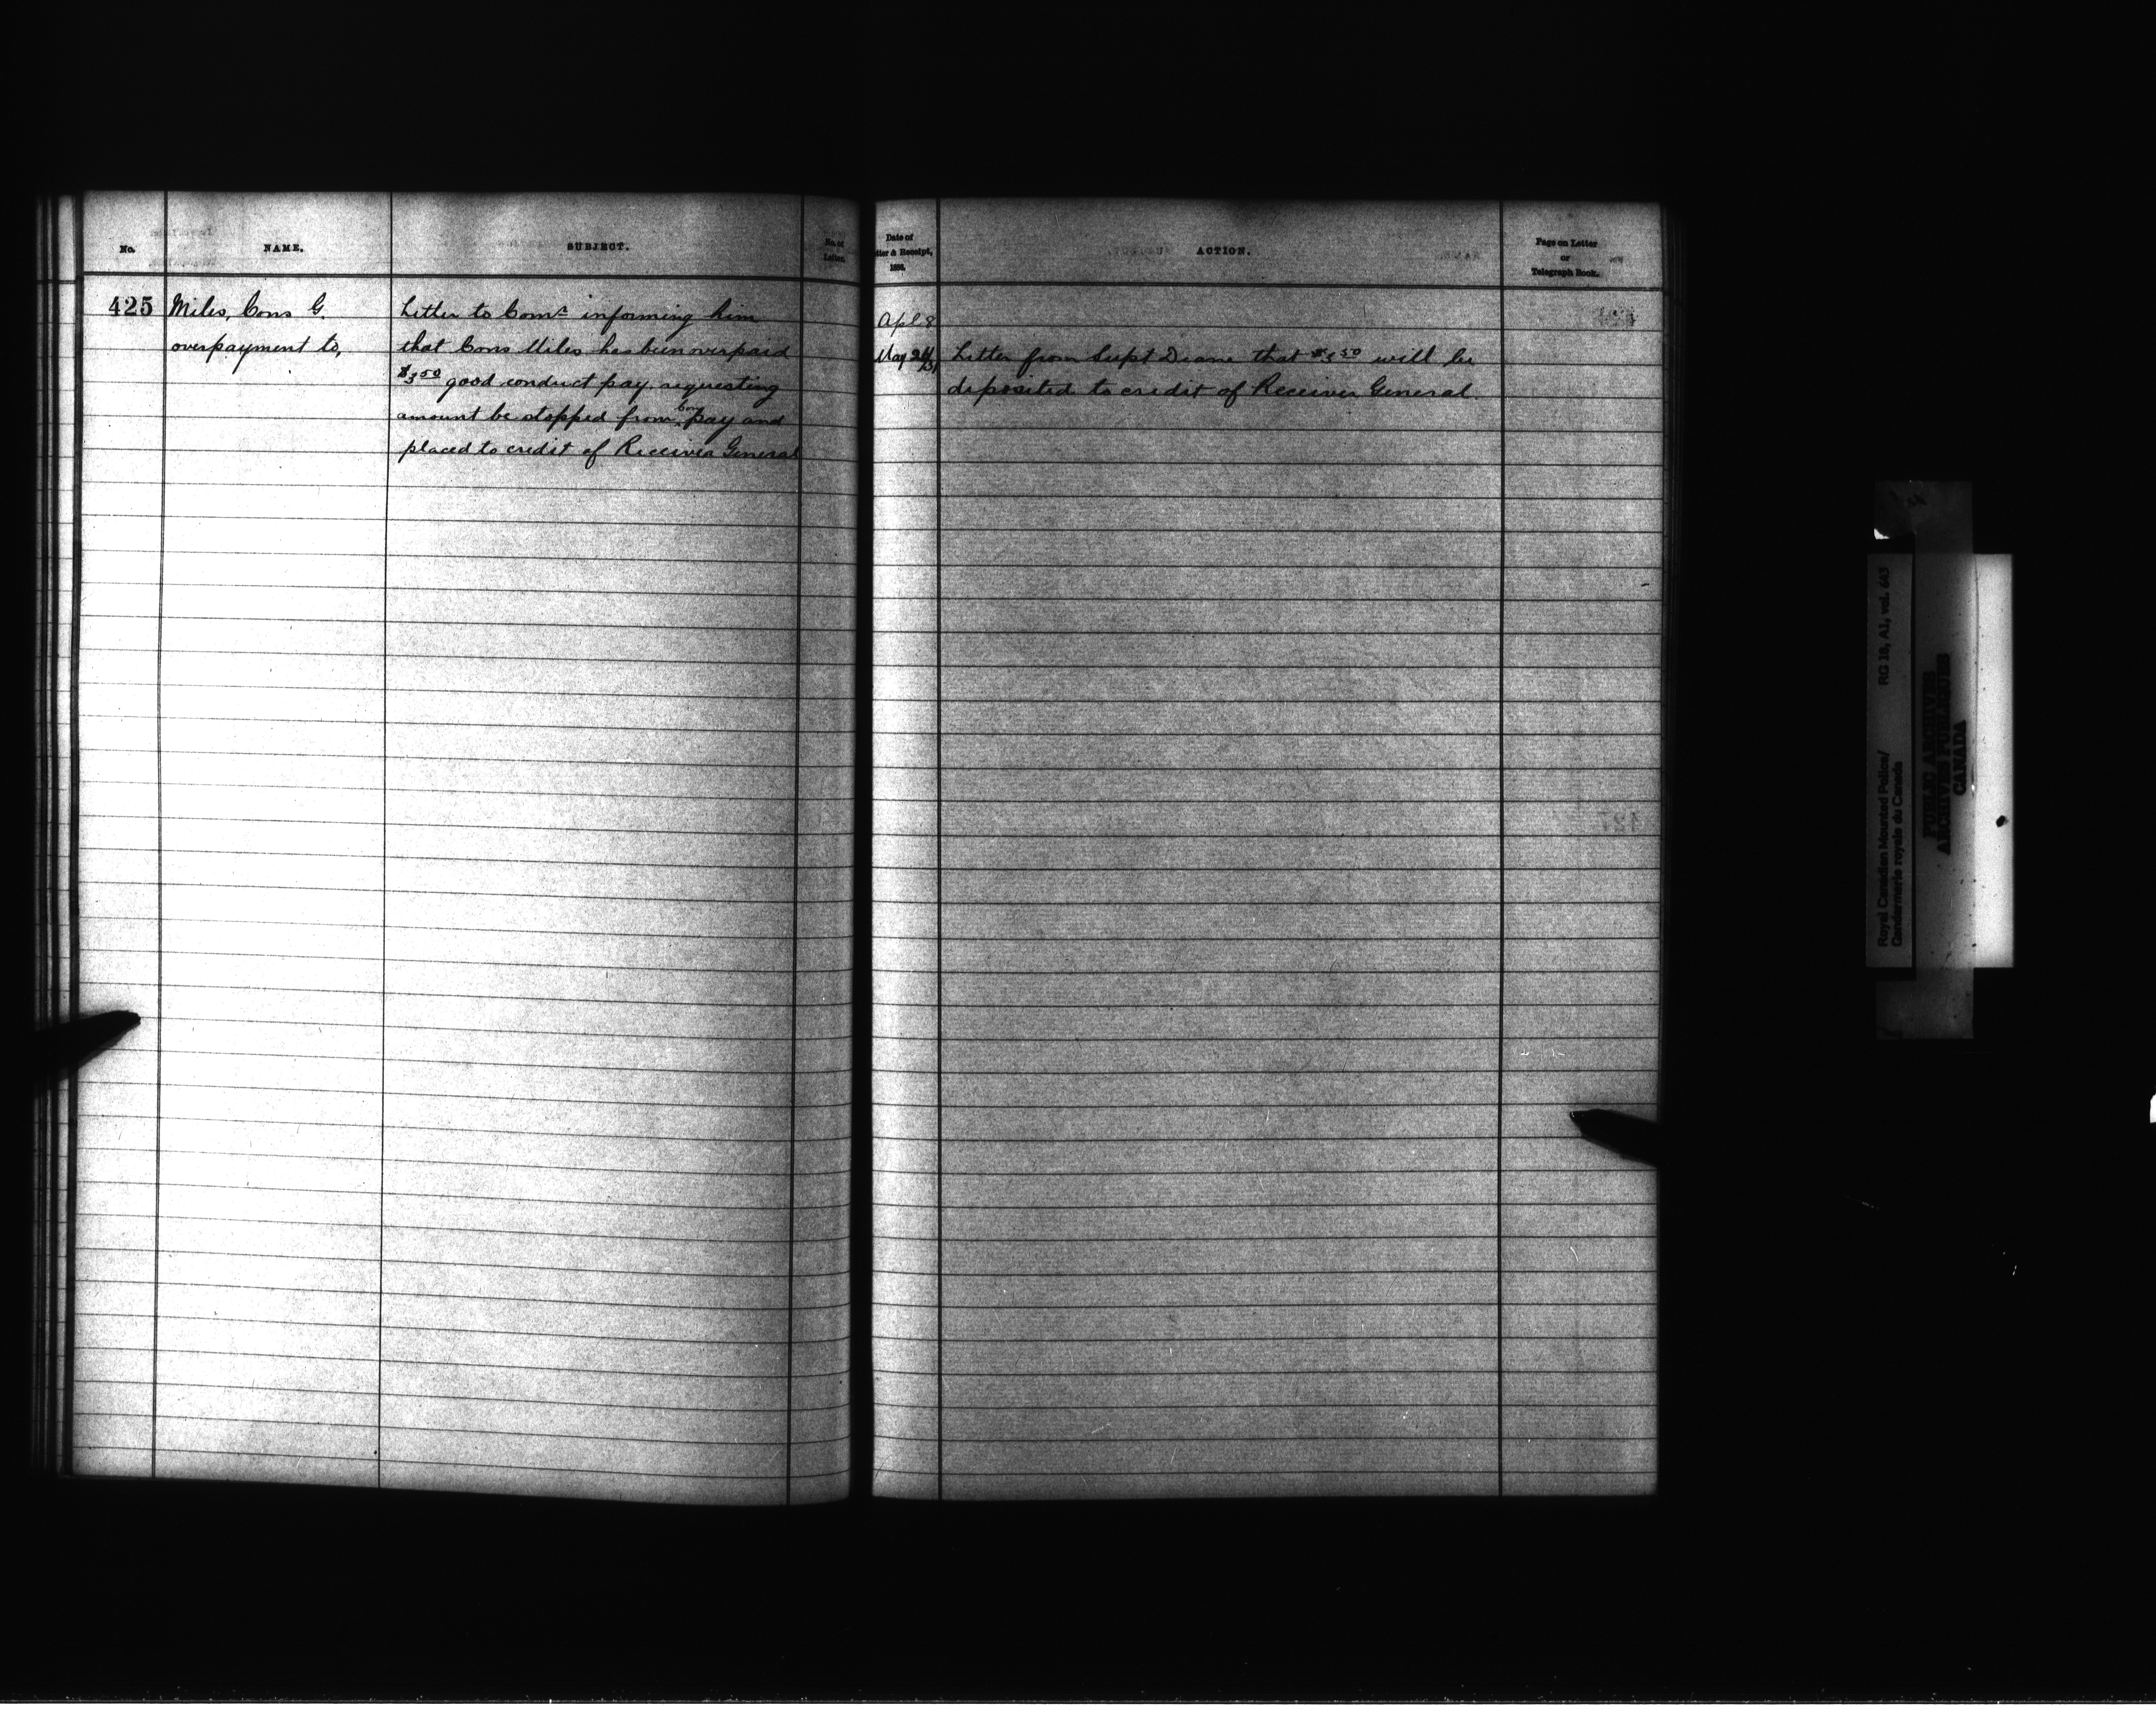 No.
NAME.
SUBJECT.
No. of
Letter.
425
Miles, Cons G.
overpayment to,
Letter to Comr informing him
that Cons Miles has been overpaid
$3.50 good conduct pay requesting
amount be stopped from Cons pay and
placed to credit of Receiver General
Date of
Letter & Receipt,
188
ACTION.
Page on Letter
or
Telegraph Book.
Apl 8
May 24/31
Letter from Supt Deane that $3.50 will be
deposited to credit of Receiver General.
Royal Canadian Mounted Police/
Gendarmerie royale du Canada
RG 18, A1, vol. 643
PUBLIC ARCHIVES
ARCHIVES PUBLIQUES
CANADA